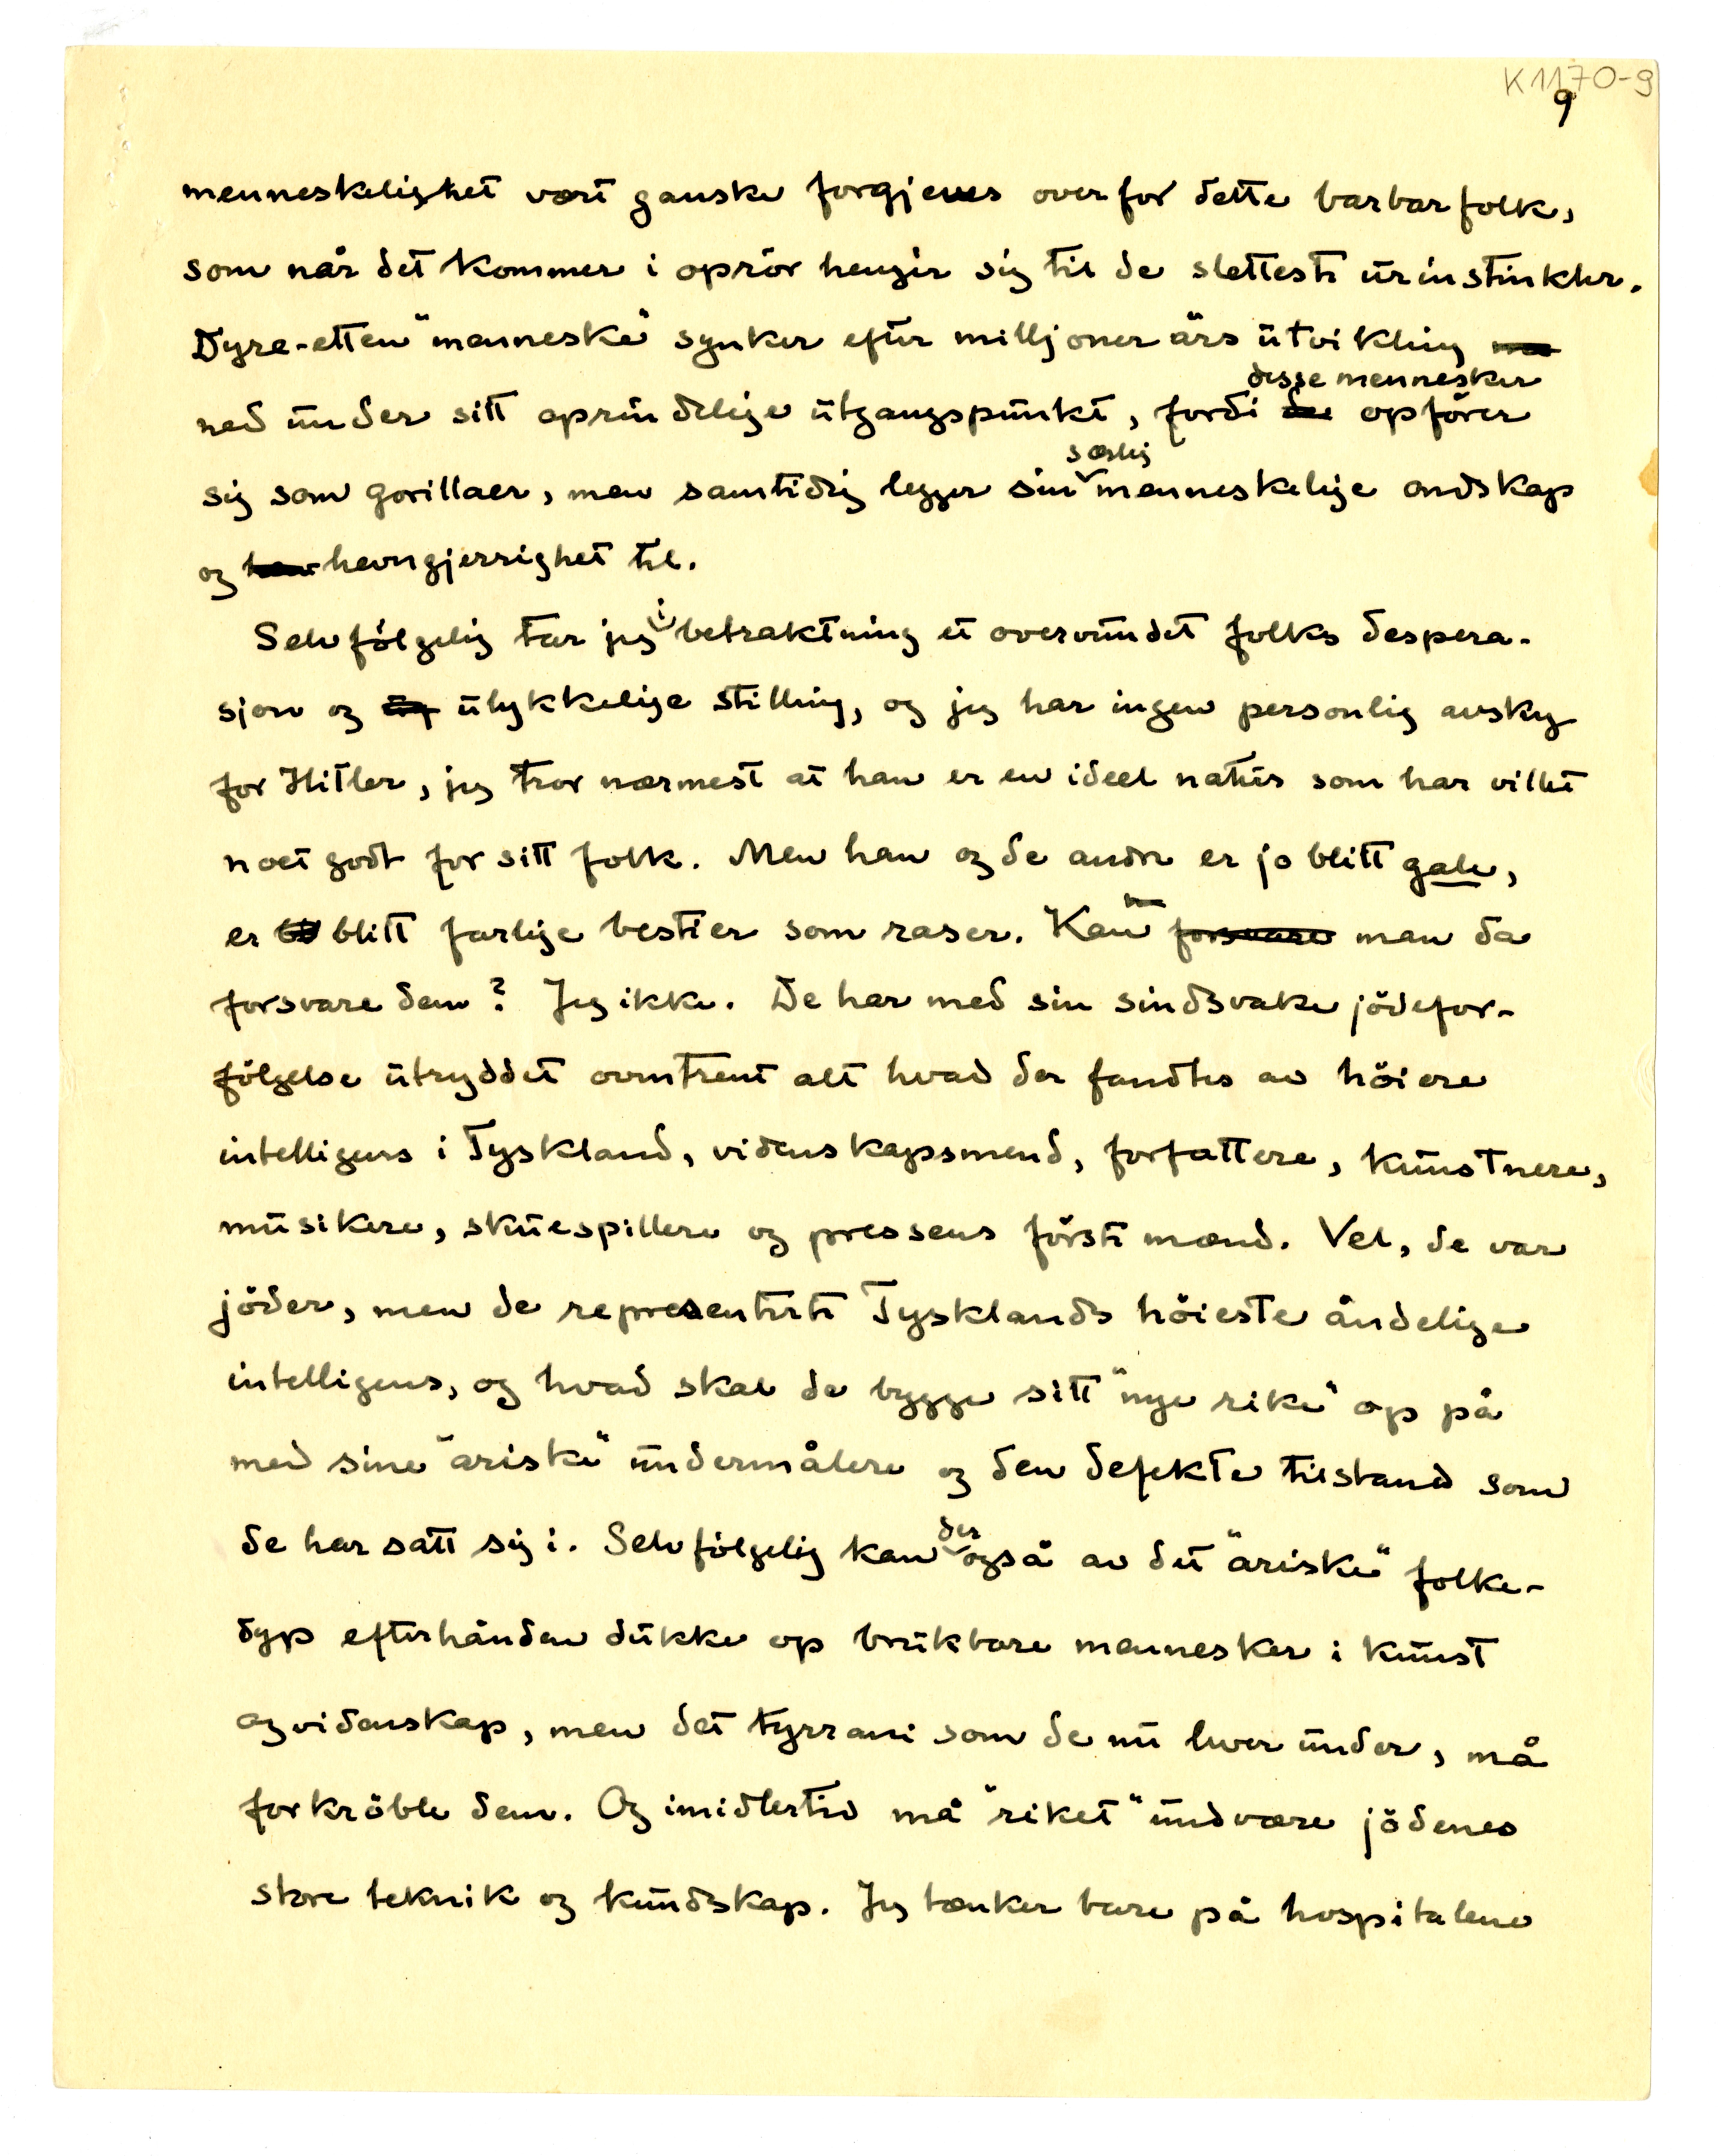 K1170-9
9
menneskelighet vært ganske forgjeves overfor dette barbarfolk,
som når det kommer i oprör hengir sig til de sletteste ürinstinkter.
Dyre-etten "menneske" synker efter milljoner års ütvikling
disse mennesker
ned ünder sitt oprindelige ütgangspünkt, fordi de opförer
særlig
sig som gorillaer, men samtidig legger sin menneskelige ondskap
og hevngjerrighet til.
Selvfölgelig tar jeg i betraktning et overvündet folks despera-
sjon og ülykkelige stilling, og jeg har ingen personlig avsky
for Hitler, jeg tror nærmest at han er en ideel natür som har villet
noet godt for sitt folk. Men han og de andre er jo blitt gale,
er blitt farlige bestier som raser. Kan forsvare man da
forsvare dem? Jeg ikke. De har med sin sindsvake jödefor-
fölgelse ütryddet omtrent alt hvad der fandtes av höiere
intelligens i Tyskland, videnskapsmend, forfattere, künstnere,
müsikere, sküespillere og pressens förste mænd. Vel, de var
jöder, men de representerte Tysklands höieste åndelige
intelligens, og hvad skal de bygge sitt "nye rike" op på
med sine "ariske" ündermålere og den defekte tilstand som
de har satt sig i. Selvfölgelig kan der også av det "ariske" folke-
dyp efterhånden dükke op brükbare mennesker i künst
og videnskap, men det tyrrani som de nü lever ünder, må
forkröble dem. Og imidlertid må "riket" ündvære jödenes
store teknik og kündskap. Jeg tænker bare på hospitalene